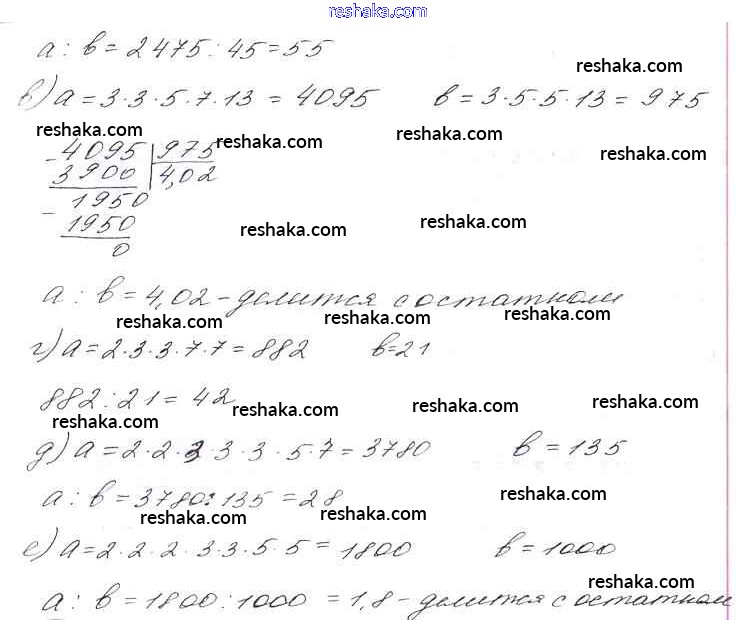 www.reshaka.com
a : b = 2475 : 45 = 55
reshaka.com
в) a = 3·3·5·7·13 = 4095 b = 3·5·5·13 = 975
reshaka.com reshaka.com reshaka.com reshaka.com
- 4095 | 975
3900 | 4,02
- 1950
1950
0
reshaka.com reshaka.com
a : b = 4,02 - делится с остатком
reshaka.com reshaka.com reshaka.com
г) a = 2·3·3·7·7 = 882 b = 21
882 : 21 = 42
reshaka.com reshaka.com reshaka.com reshaka.com
д) a = 2·2·3·3·3·5·7 = 3780 b = 135
a : b = 3780 : 135 = 28
reshaka.com reshaka.com reshaka.com
е) a = 2·2·2·3·3·5·5 = 1800 b = 1000
reshaka.com
a : b = 1800 : 1000 = 1,8 - делится с остатком